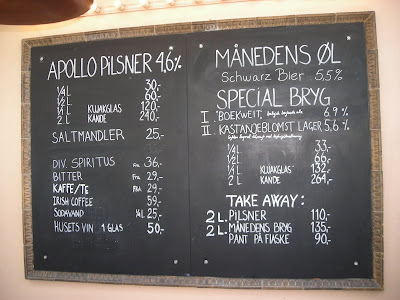 APOLLO PILSNER 4,6%
1/4 L 30,-
1/2 L 60,-
1 L KUJAKGLAS 120,-
2 L KANDE 240,-
SALTMANDLER 25,-
DIV. SPIRITUS Fra 36,-
BITTER Fra 29,-
KAFFE/TE FRA 29,-
IRISH COFFEE 59,-
SODAVAND 1/4 L 25,-
HUSETS VIN 1 GLAS 50,-
MÅNEDENS ØL
Schwarz Bier 5,5%
SPECIAL BRYG
I BOEKWEIT 6,9%
II KASTANJEBLOMST LAGER 5,6%
1/4 L 33,-
1/2 L 66,-
1 L KUJAKGLAS 132,-
2 L KANDE 264,-
TAKE AWAY:
2 L. PILSNER 110,-
2 L. MÅNEDENS BRYG 135,-
PANT PÅ FLASKE 90,-